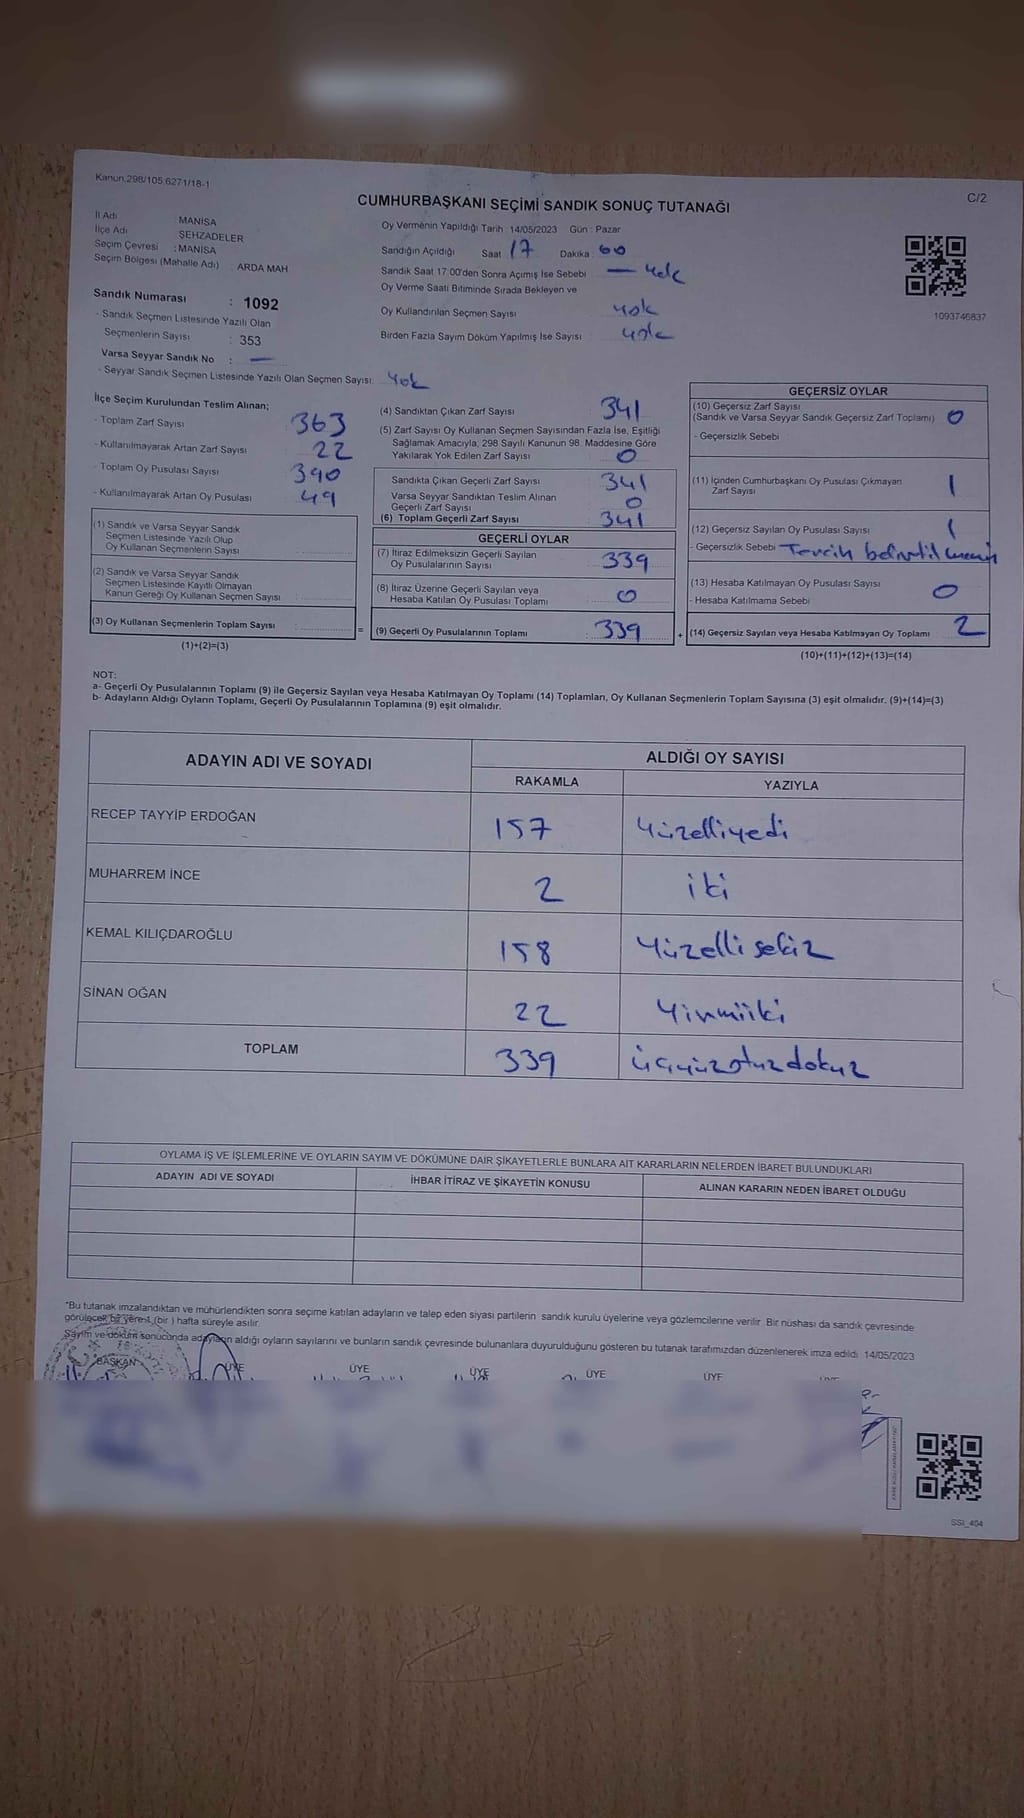 Kanun.298/105.6271/18-1
C/2
CUMHURBAŞKANI SEÇİMİ SANDIK SONUÇ TUTANAĞI
İl Adı : MANİSA
İlçe Adı : ŞEHZADELER
Seçim Çevresi : MANİSA
Seçim Bölgesi (Mahalle Adı) : ARDA MAH
Oy Vermenin Yapıldığı Tarih : 14/05/2023 Gün : Pazar
Sandığın Açıldığı Saat 17 Dakika : 00
Sandık Saat 17:00'den Sonra Açımış İse Sebebi — yok
Oy Verme Saati Bitiminde Sırada Bekleyen ve
Oy Kullandırılan Seçmen Sayısı yok
Birden Fazla Sayım Döküm Yapılmış İse Sayısı yok
1093746837
Sandık Numarası : 1092
- Sandık Seçmen Listesinde Yazılı Olan
Seçmenlerin Sayısı : 353
Varsa Seyyar Sandık No : —
- Seyyar Sandık Seçmen Listesinde Yazılı Olan Seçmen Sayısı: yok
İlçe Seçim Kurulundan Teslim Alınan;
- Toplam Zarf Sayısı 363
- Kullanılmayarak Artan Zarf Sayısı 22
- Toplam Oy Pusulası Sayısı 390
- Kullanılmayarak Artan Oy Pusulası 49
(1) Sandık ve Varsa Seyyar Sandık
Seçmen Listesinde Yazılı Olup
Oy Kullanan Seçmenlerin Sayısı :
(2) Sandık ve Varsa Seyyar Sandık
Seçmen Listesinde Kayıtlı Olmayan
Kanun Gereği Oy Kullanan Seçmen Sayısı :
(3) Oy Kullanan Seçmenlerin Toplam Sayısı :
(1)+(2)=(3)
(4) Sandıktan Çıkan Zarf Sayısı 341
(5) Zarf Sayısı Oy Kullanan Seçmen Sayısından Fazla İse, Eşitliği
Sağlamak Amacıyla, 298 Sayılı Kanunun 98. Maddesine Göre
Yakılarak Yok Edilen Zarf Sayısı 0
Sandıkta Çıkan Geçerli Zarf Sayısı 341
Varsa Seyyar Sandıktan Teslim Alınan
Geçerli Zarf Sayısı 0
(6) Toplam Geçerli Zarf Sayısı 341
GEÇERLİ OYLAR
(7) İtiraz Edilmeksizin Geçerli Sayılan
Oy Pusulalarının Sayısı 339
(8) İtiraz Üzerine Geçerli Sayılan veya
Hesaba Katılan Oy Pusulası Toplamı 0
= (9) Geçerli Oy Pusulalarının Toplamı : 339
GEÇERSİZ OYLAR
(10) Geçersiz Zarf Sayısı
(Sandık ve Varsa Seyyar Sandık Geçersiz Zarf Toplamı) 0
- Geçersizlik Sebebi
(11) İçinden Cumhurbaşkanı Oy Pusulası Çıkmayan
Zarf Sayısı 1
(12) Geçersiz Sayılan Oy Pusulası Sayısı 1
- Geçersizlik Sebebi Tercih
(13) Hesaba Katılmayan Oy Pusulası Sayısı 0
- Hesaba Katılmama Sebebi
+ (14) Geçersiz Sayılan veya Hesaba Katılmayan Oy Toplamı 2
(10)+(11)+(12)+(13)=(14)
NOT:
a- Geçerli Oy Pusulalarının Toplamı (9) ile Geçersiz Sayılan veya Hesaba Katılmayan Oy Toplamı (14) Toplamları, Oy Kullanan Seçmenlerin Toplam Sayısına (3) eşit olmalıdır. (9)+(14)=(3)
b- Adayların Aldığı Oyların Toplamı, Geçerli Oy Pusulalarının Toplamına (9) eşit olmalıdır.
ADAYIN ADI VE SOYADI
ALDIĞI OY SAYISI
RAKAMLA YAZIYLA
RECEP TAYYİP ERDOĞAN 157 yüzelliyedi
MUHARREM İNCE 2 iki
KEMAL KILIÇDAROĞLU 158 yüzelli sekiz
SİNAN OĞAN 22 yirmiiki
TOPLAM 339 üçyüzotuzdokuz
OYLAMA İŞ VE İŞLEMLERİNE VE OYLARIN SAYIM VE DÖKÜMÜNE DAİR ŞİKAYETLERLE BUNLARA AİT KARARLARIN NELERDEN İBARET BULUNDUKLARI
ADAYIN ADI VE SOYADI
İHBAR İTİRAZ VE ŞİKAYETİN KONUSU
ALINAN KARARIN NEDEN İBARET OLDUĞU
"Bu tutanak imzalandıktan ve mühürlendikten sonra seçime katılan adayların ve talep eden siyasi partilerin sandık kurulu üyelerine veya gözlemcilerine verilir. Bir nüshası da sandık çevresinde
görülecek bir yere 1 (bir) hafta süreyle asılır.
Sayım ve döküm sonucunda adayların aldığı oyların sayılarını ve bunların sandık çevresinde bulunanlara duyurulduğunu gösteren bu tutanak tarafımızdan düzenlenerek imza edildi. 14/05/2023
BAŞKAN ÜYE ÜYE ÜYE ÜYE ÜYE
SSI_404